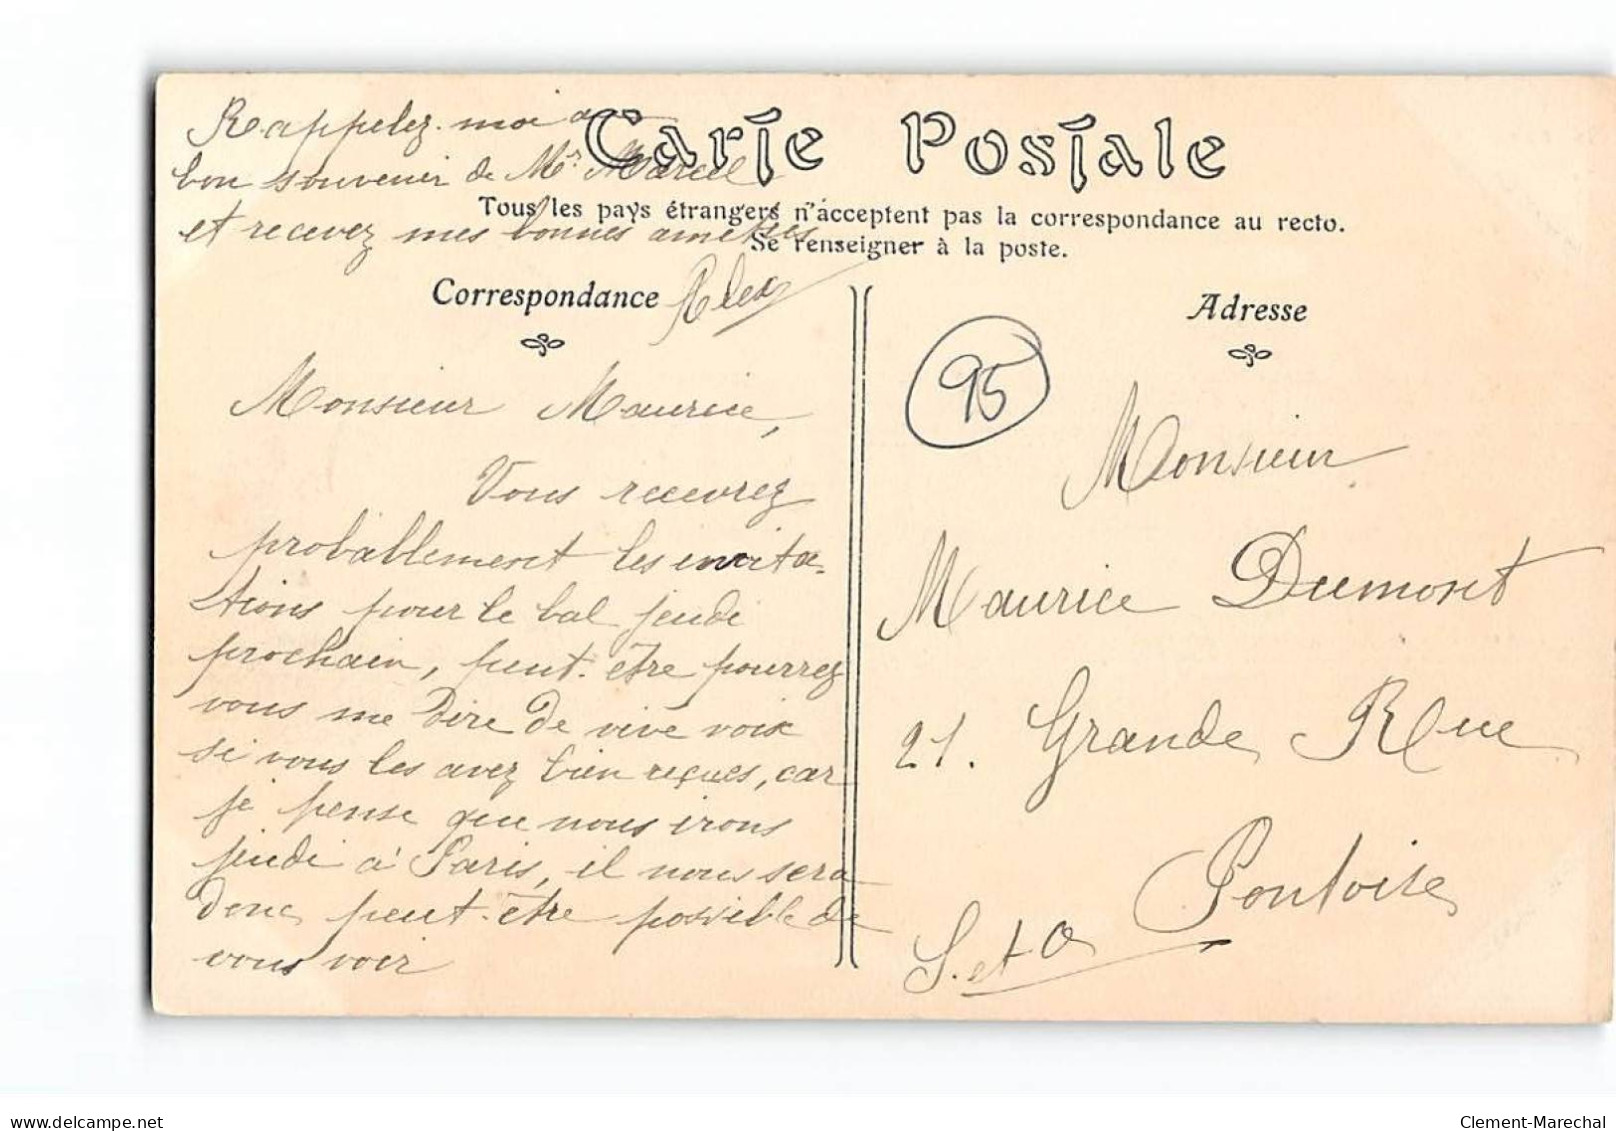 Rappelez-moi au
bon souvenir de Mr Marcel
et recevez mes bonnes amitiés
Alex
Carte Postale
Tous les pays étrangers n'acceptent pas la correspondance au recto.
Se renseigner à la poste.
Correspondance
Monsieur Maurice,
Vous recevrez
probablement les invita-
tions pour le bal jeudi
prochain, peut-être pourrez
vous me dire de vive voix
si vous les avez bien reçues, car
je pense que nous irons
jeudi à Paris, il nous sera
donc peut-être possible de
vous voir
Adresse
95
Monsieur
Maurice Dumont
21. Grande Rue
Pontoise
S. et O
www.delcampe.net
Clement-Marechal